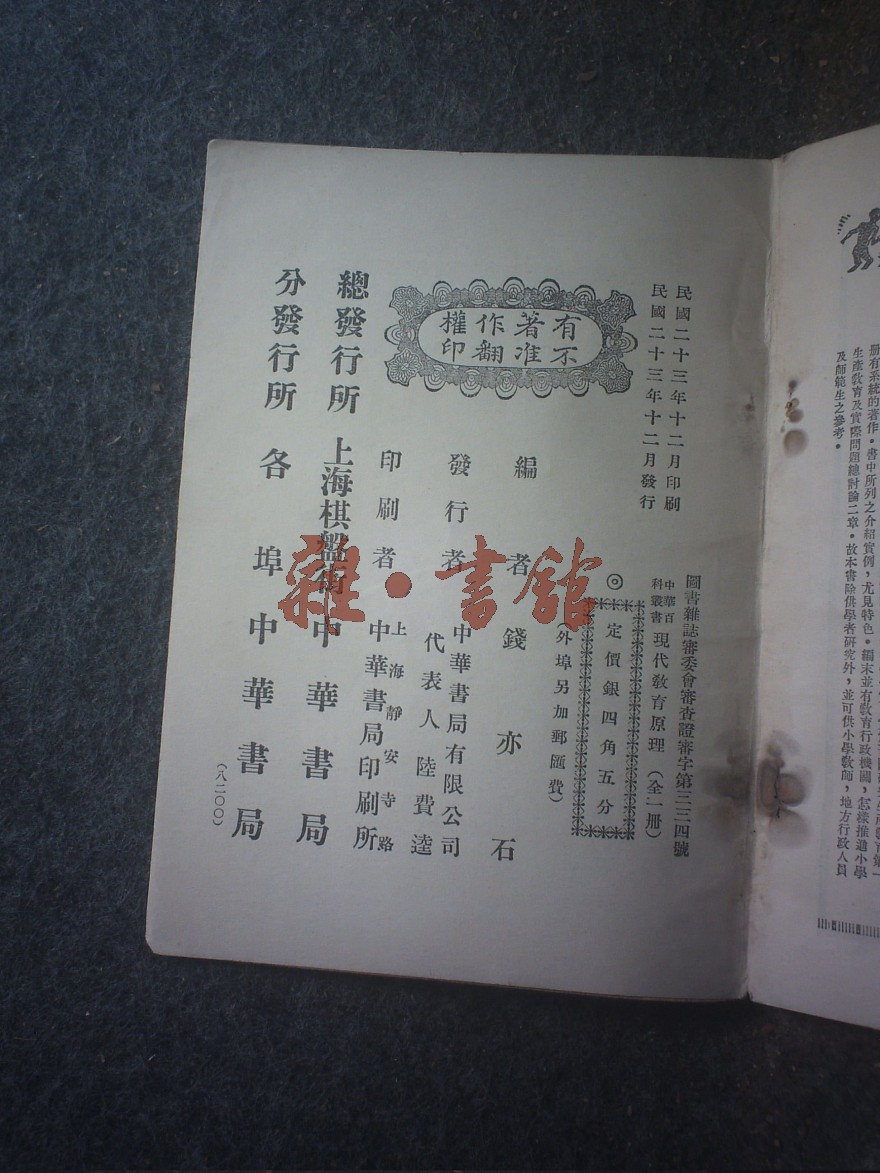 册有系統的著作。書中所列之介紹實例，尤見特色。編末並有教育行政機關，怎樣推進小學
生產教育及實際問題總討論二章。故本書除供學者研究外，並可供小學教師，地方行政人員
及師範生之參考。
民國二十三年十二月印刷
民國二十三年十二月發行
圖書雜誌審委會審查證審字第三三四號
中華百科叢書 現代教育原理（全一册）
◎定價銀四角五分
（外埠另加郵匯費）
有著作權
不准翻印
編者 錢亦石
發行者 中華書局有限公司
代表人 陸費逵
印刷者 上海靜安寺路
中華書局印刷所
總發行所 上海棋盤街 中華書局
分發行所 各埠 中華書局
（八二〇〇）
雜·書館